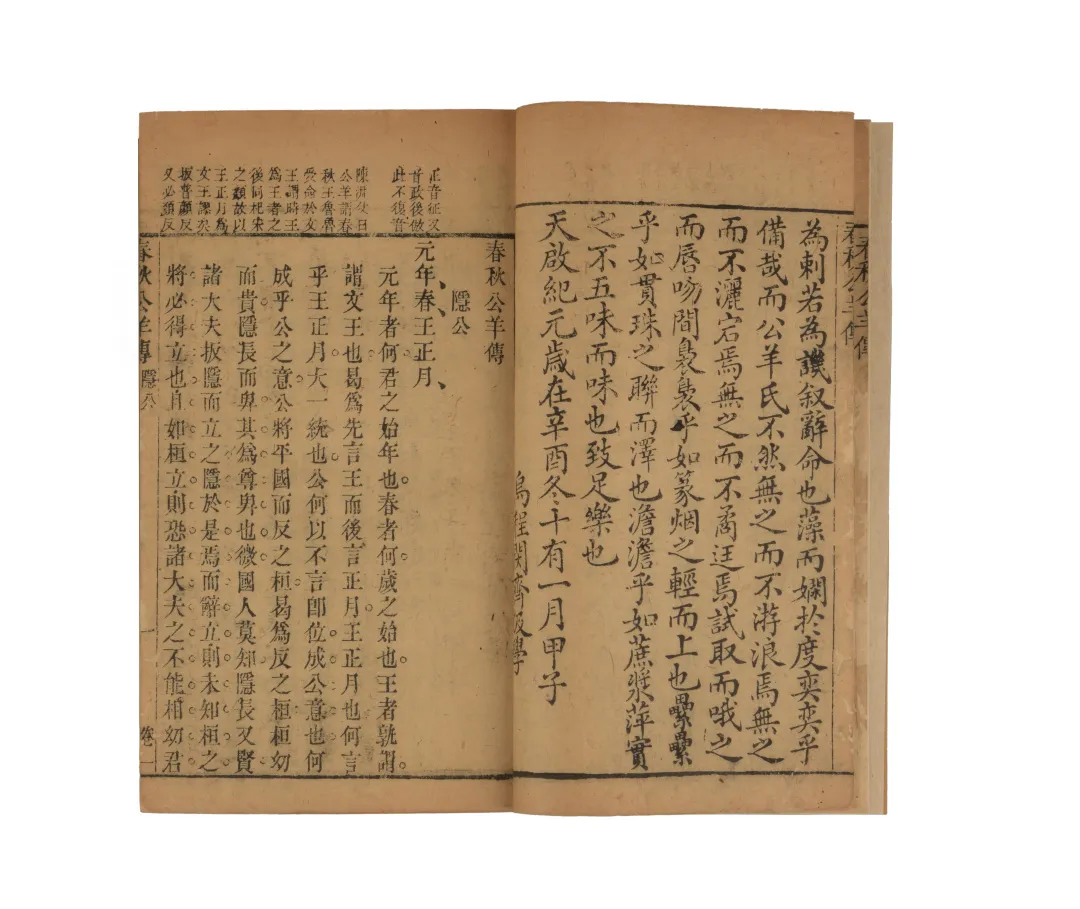 為刺若為譏叙辭命也藻而嫻於度奕奕乎
備哉而公羊氏不然無之而不游浪焉無之
而不灑宕焉無之而不矞迋焉試取而哦之
而唇吻間裊裊乎如篆烟之輕而上也纍纍
乎如貫珠之聯而澤也澹澹乎如蔗漿萍實
之不五味而味也致足樂也
天啟紀元歲在辛酉冬十有一月甲子
烏程閔齊伋學
春秋公羊傳
隱公
正音征又
音政後倣
此不復音
元年春王正月
陳洪
公羊謂春
秋王魯魯
受命於文
王謂時王
為王者之
後同杞宋
之類故以
王正月為
文王謬矣
扳普顏反
又必顏反
元年者何君之始年也春者何歲之始也王者孰謂
謂文王也曷為先言王而後言正月王正月也何言
乎王正月大一統也公何以不言卽位成公意也何
成乎公之意公將平國而反之桓曷為反之桓桓幼
而貴隱長而卑其為尊卑也微國人莫知隱長又賢
諸大夫扳隱而立之隱於是焉而辭立則未知桓之
將必得立也且如桓立則恐諸大夫之不能相幼君
春秋公羊傳 隱公 一 卷一